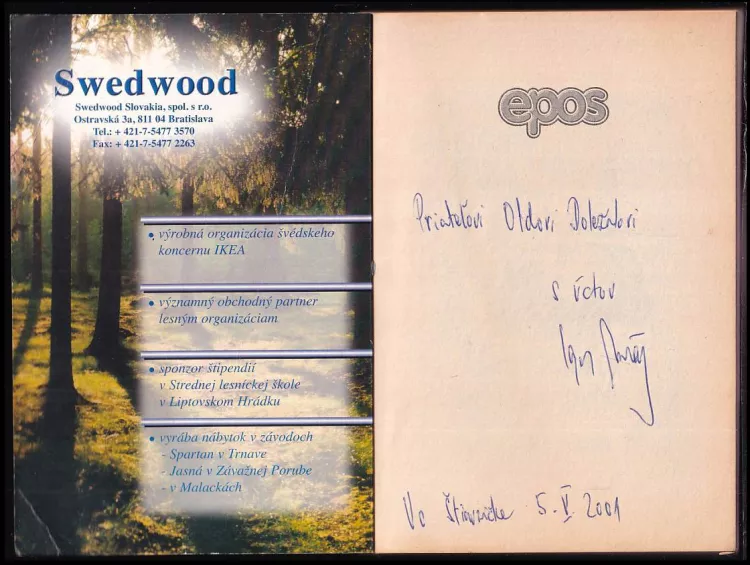 Swedwood
Swedwood Slovakia, spol. s r.o.
Ostravská 3a, 811 04 Bratislava
Tel.: + 421-7-5477 3570
Fax: + 421-7-5477 2263
• výrobná organizácia švédskeho
koncernu IKEA
• významný obchodný partner
lesným organizáciam
• sponzor štipendií
v Strednej lesníckej škole
v Liptovskom Hrádku
• vyrába nábytok v závodoch
- Spartan v Trnave
- Jasná v Závažnej Porube
- v Malackách
epos
Priateľovi Oldovi Doležalovi
s úctou
Igor
Vo 5. V. 2001